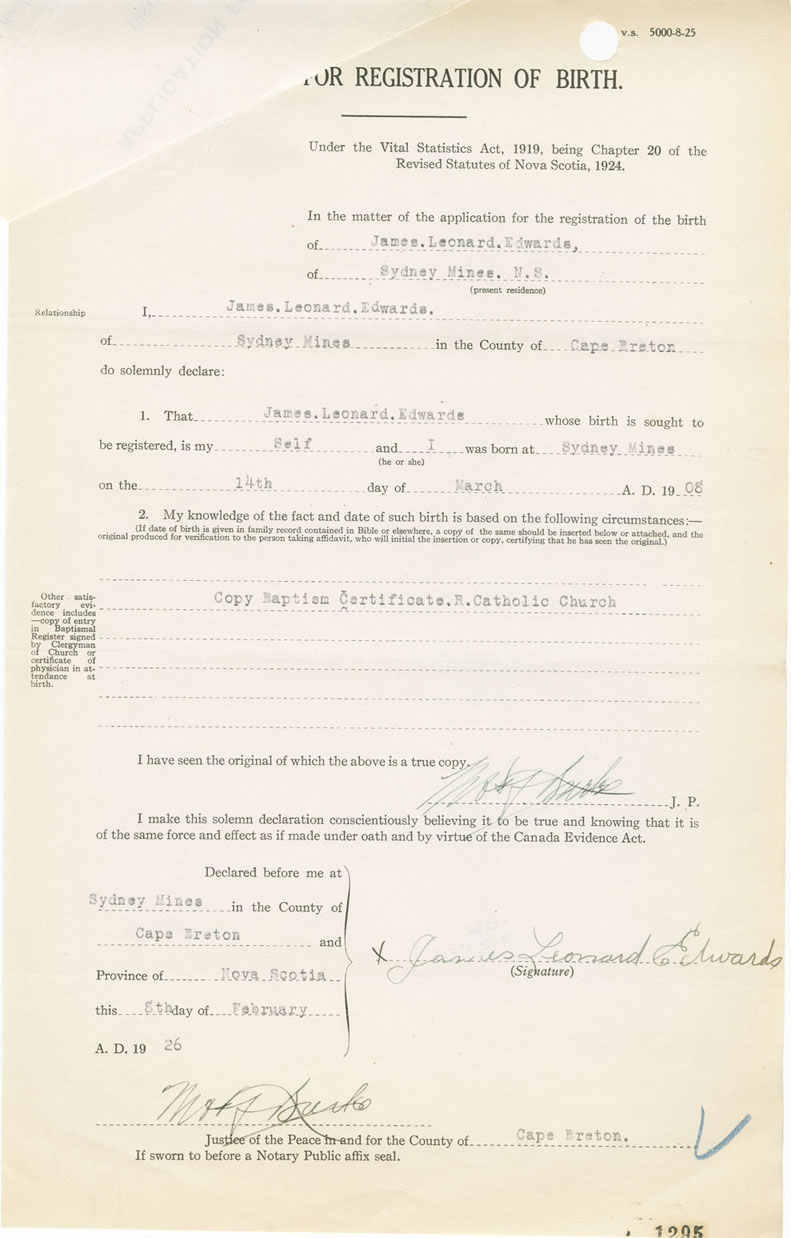 v.s. 5000-8-25
FOR REGISTRATION OF BIRTH.
Under the Vital Statistics Act, 1919, being Chapter 20 of the
Revised Statutes of Nova Scotia, 1924.
In the matter of the application for the registration of the birth
of James.Leonard.Edwards,
of Sydney Mines. N.S.
(present residence)
Relationship I, James.Leonard.Edwards.
of Sydney Mines in the County of Cape Breton
do solemnly declare:
1. That James.Leonard.Edwards whose birth is sought to
be registered, is my Self and I was born at Sydney Mines
(he or she)
on the 14th day of March A. D. 19 08
2. My knowledge of the fact and date of such birth is based on the following circumstances:—
(If date of birth is given in family record contained in Bible or elsewhere, a copy of the same should be inserted below or attached, and the
original produced for verification to the person taking affidavit, who will initial the insertion or copy, certifying that he has seen the original.)
Copy Baptism Certificate.R.Catholic Church
Other satis-
factory evi-
dence includes
—copy of entry
in Baptismal
Register signed
by Clergyman
of Church or
certificate of
physician in at-
tendance at
birth.
I have seen the original of which the above is a true copy.
J. P.
I make this solemn declaration conscientiously believing it to be true and knowing that it is
of the same force and effect as if made under oath and by virtue of the Canada Evidence Act.
Declared before me at
Sydney Mines in the County of
Cape Breton and
Province of Nova Scotia
this 8th day of February
A. D. 19 26
X James Leonard Edwards
(Signature)
Justice of the Peace in and for the County of Cape Breton.
If sworn to before a Notary Public affix seal.
1295